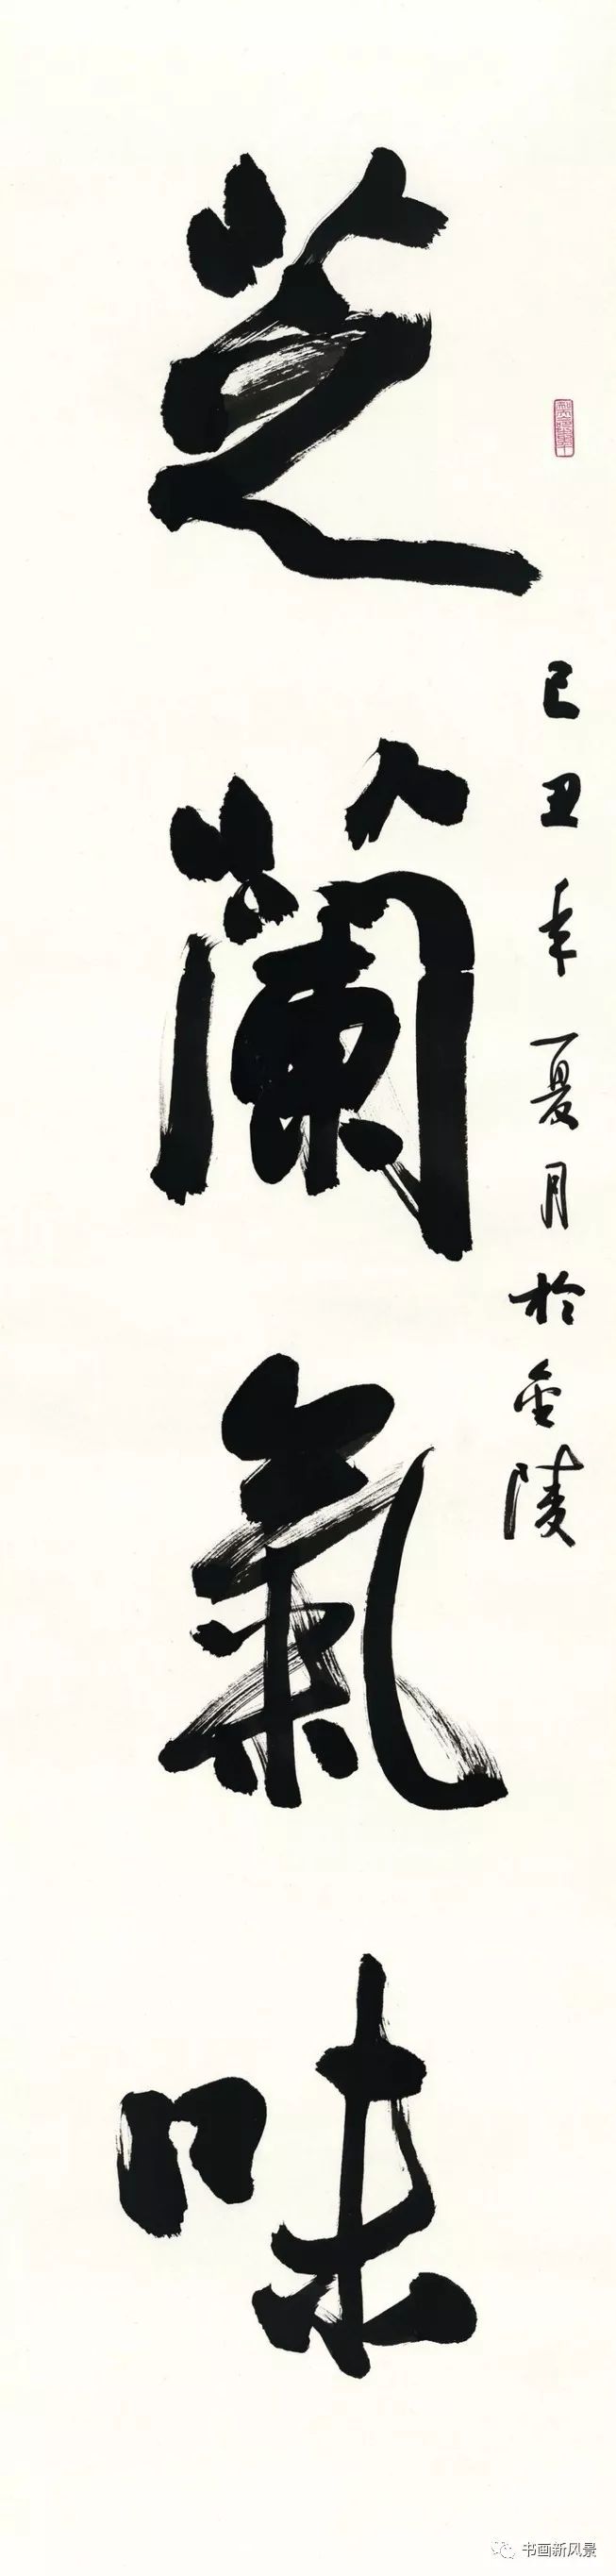 己丑年夏月於金陵
芝蘭氣味
书画新风景